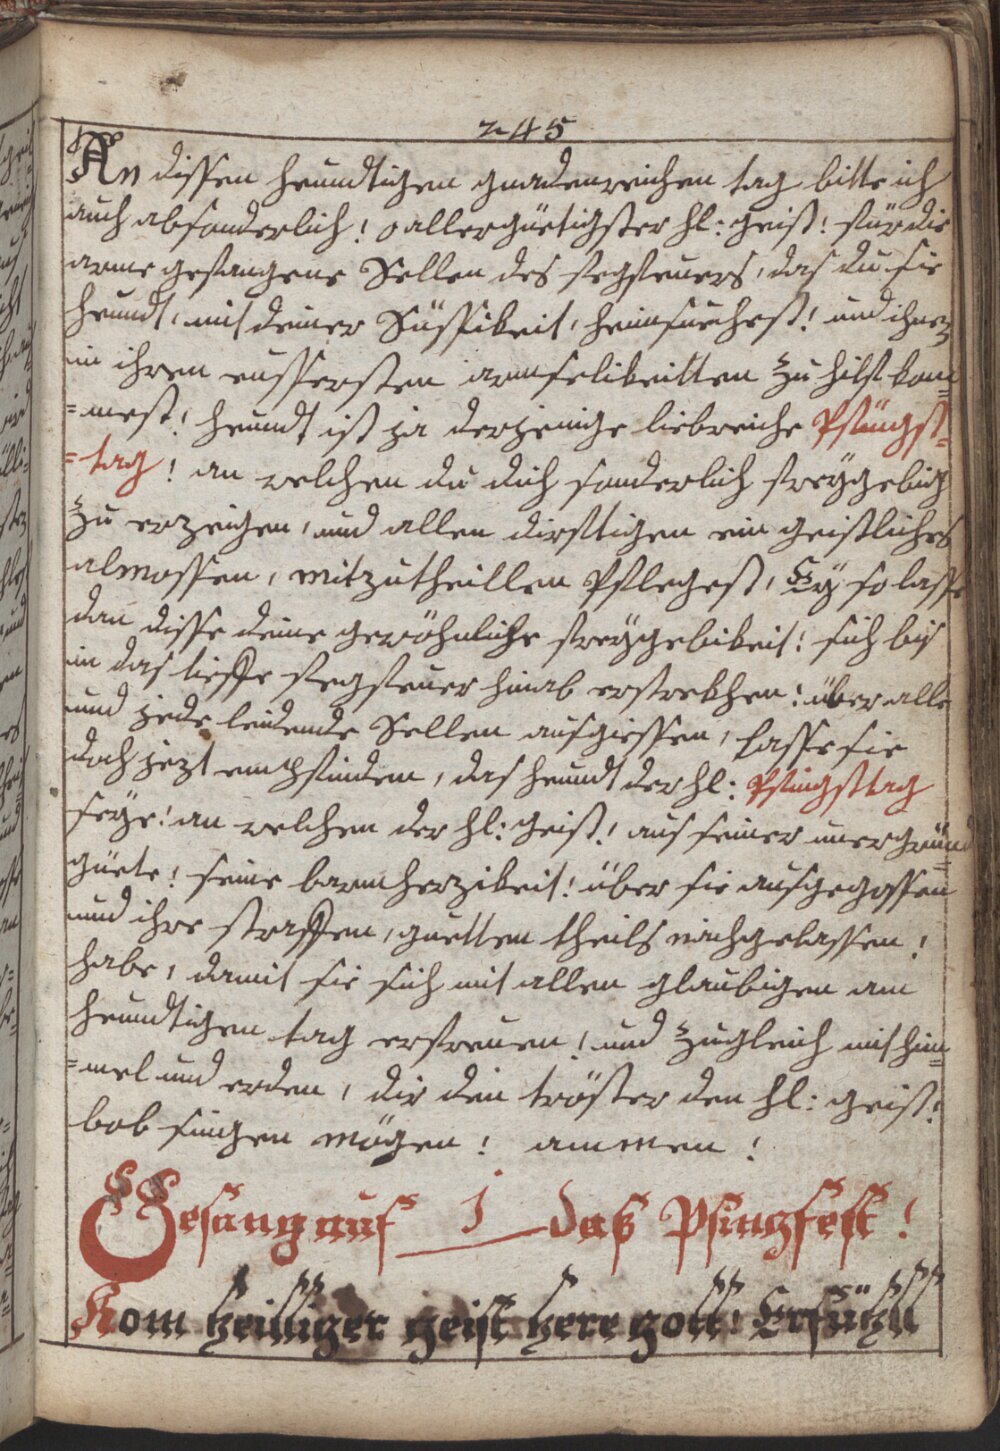 245
An dissen heundtigen gnadenreichen tag bitte ich
auch absonderlich! o allergüetigster hl: geist! für die
arme gefangene Sellen des fegfeuers, das du sie
heundt, mit deiner Süssikeit, heimsuechest! und ihnen
in ihren eussersten armselikeitten zu hilf kom=
=mest! heundt ist ja derjenige liebreiche Pfingst=
=tag! an welchen du dich sonderlich freÿgebig
zu erzeigen, und allen dirftigen ein geistliches
almossen, mitzutheillen Pflegest, Eÿ so lasse
dan disse deine gewöhnliche freÿgebikeit! sich bis
in das tieffe fegfeuer hinab erstrekhen! über alle
und jede leidende Sellen ausgiessen, lasse sie
doch jezt empfinden, das heundt der hl: Pfingsttag
seÿe! an welchen der hl: geist! aus seiner unergründ=
güete! seine barmherzikeit! über sie ausgegossen
und ihre straffen, guetten theils nachgelassen!
habe, damit sie sich mit allen glaubigen am
heundtigen tag erfreuen! und zugleich mit him=
=mel und erden, dir den tröster den hl: geist!
lob singen mögen! ammen!
Gesang auf 1 das Pfingfest!
Kom heilliger geist here gott! Erfühll